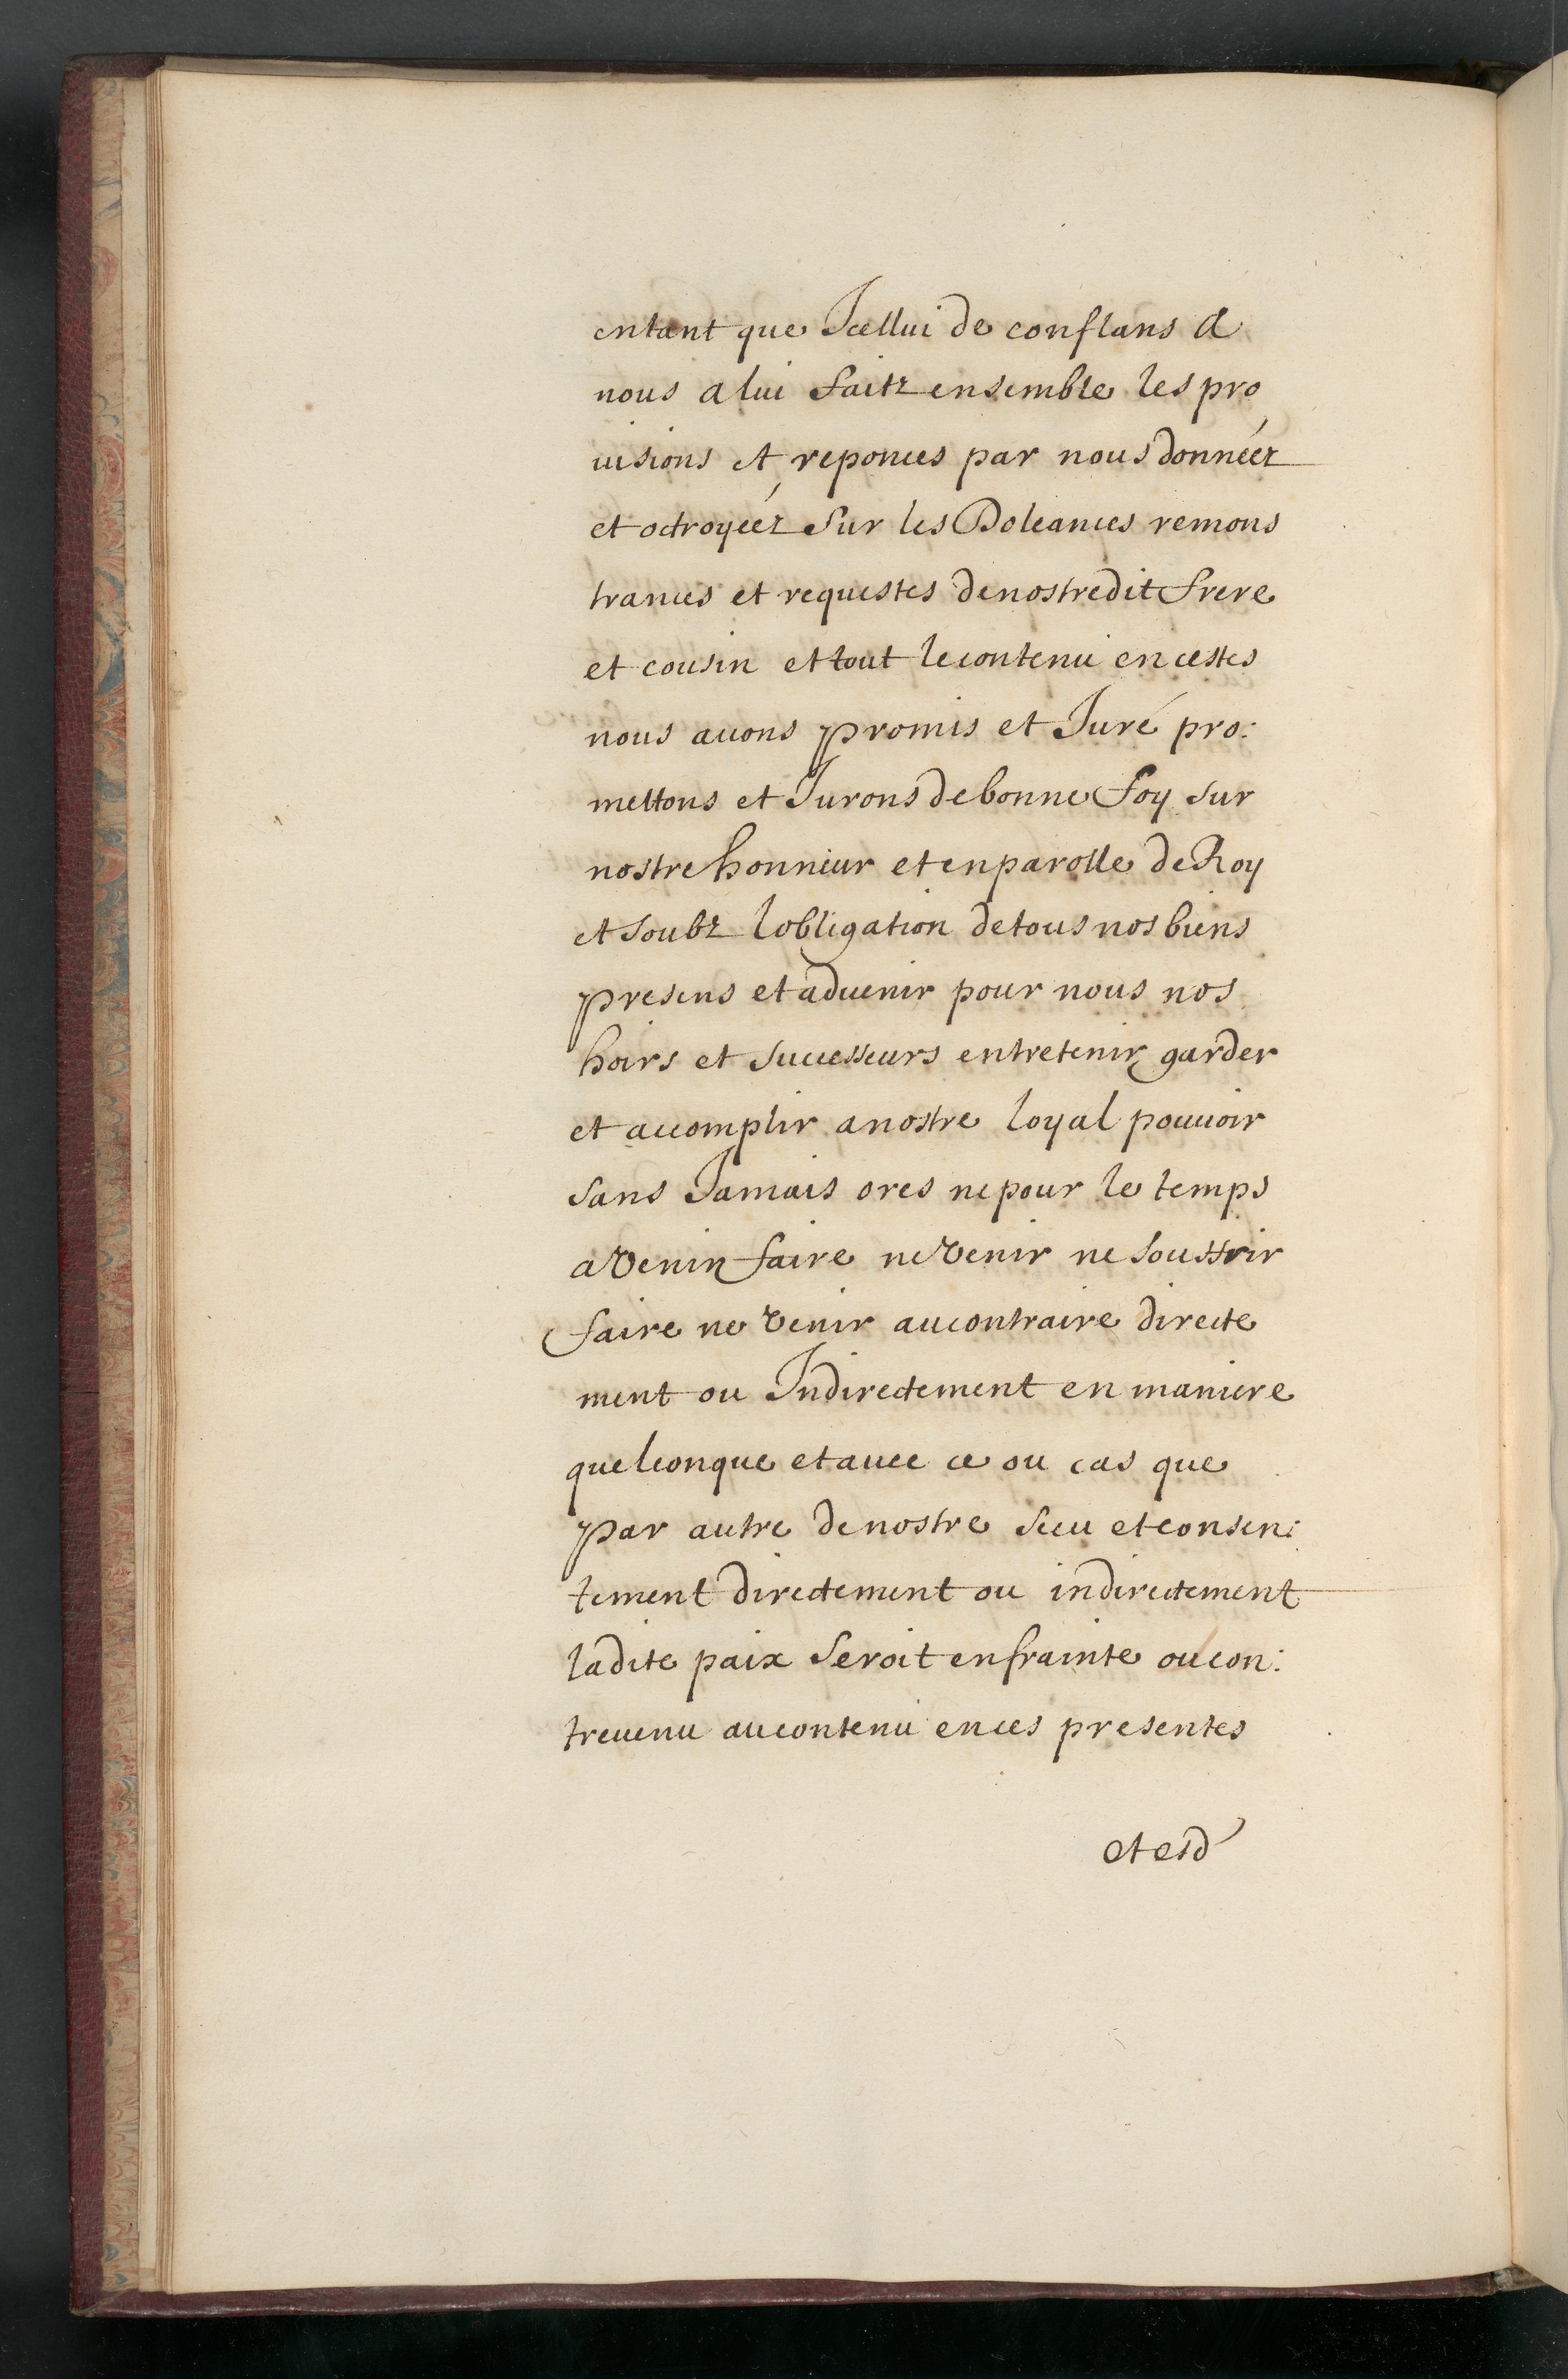 entant que Icellui de conflans A
nous a lui faitz ensemble les pro
uisions et reponces par nous donnéez
et octroyéez sur les Doleances remons
trances et requestes de nostredit frere
et cousin et tout le contenu en cestes
nous auons promis et Juré pro:
mettons et Jurons de bonne foy sur
nostre honneur et en parolle de Roy
et soubz lobligation de tous nos biens
presens et aduenir pour nous nos
hoirs et successeurs entretenir garder
et accomplir a nostre loyal pouuoir
sans Jamais ores ne pour le temps
a Venir faire ne Venir ne souffrir
faire ne Venir au contraire directe
ment ou Indirectement en maniere
quelconque et auec ce ou cas que
par autre de nostre sceu et consen:
tement directement ou indirectement
ladite paix seroit enfrainte ou con:
treuenu au contenu en ces presentes
et esd